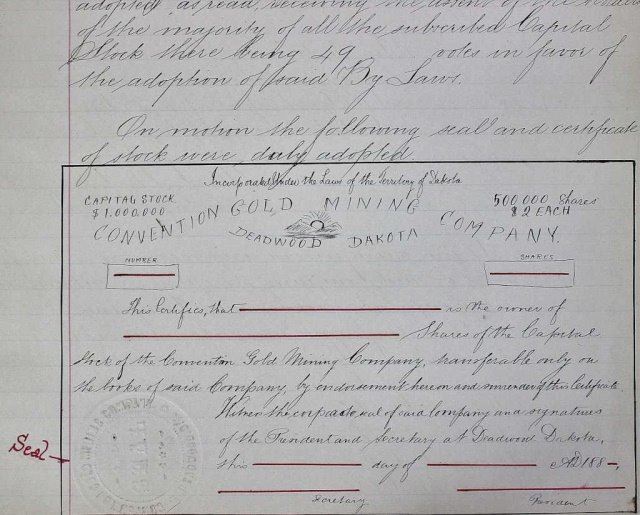 adopted, as read, receiving the assent of the
of the majority of all the subscribed Capital
Stock there being 49 votes in favor of
the adoption of said By Laws.
On motion the following seal and certificate
of stock were duly adopted
Incorporated Under the Laws of the Territory of Dakota
CAPITAL STOCK
$1,000,000
500,000 Shares
$2 EACH
CONVENTION GOLD MINING COMPANY.
DEADWOOD DAKOTA
NUMBER
SHARES
This Certifies, that is the owner of
Shares of the Capital
Stock of the Convention Gold Mining Company, transferable only on
the books of said Company, by endorsement hereon and surrender of this Certificate.
Witness the corporate seal of said Company and signatures
of the President and Secretary at Deadwood Dakota,
this day of A.D. 188-,
Seal
Secretary
President